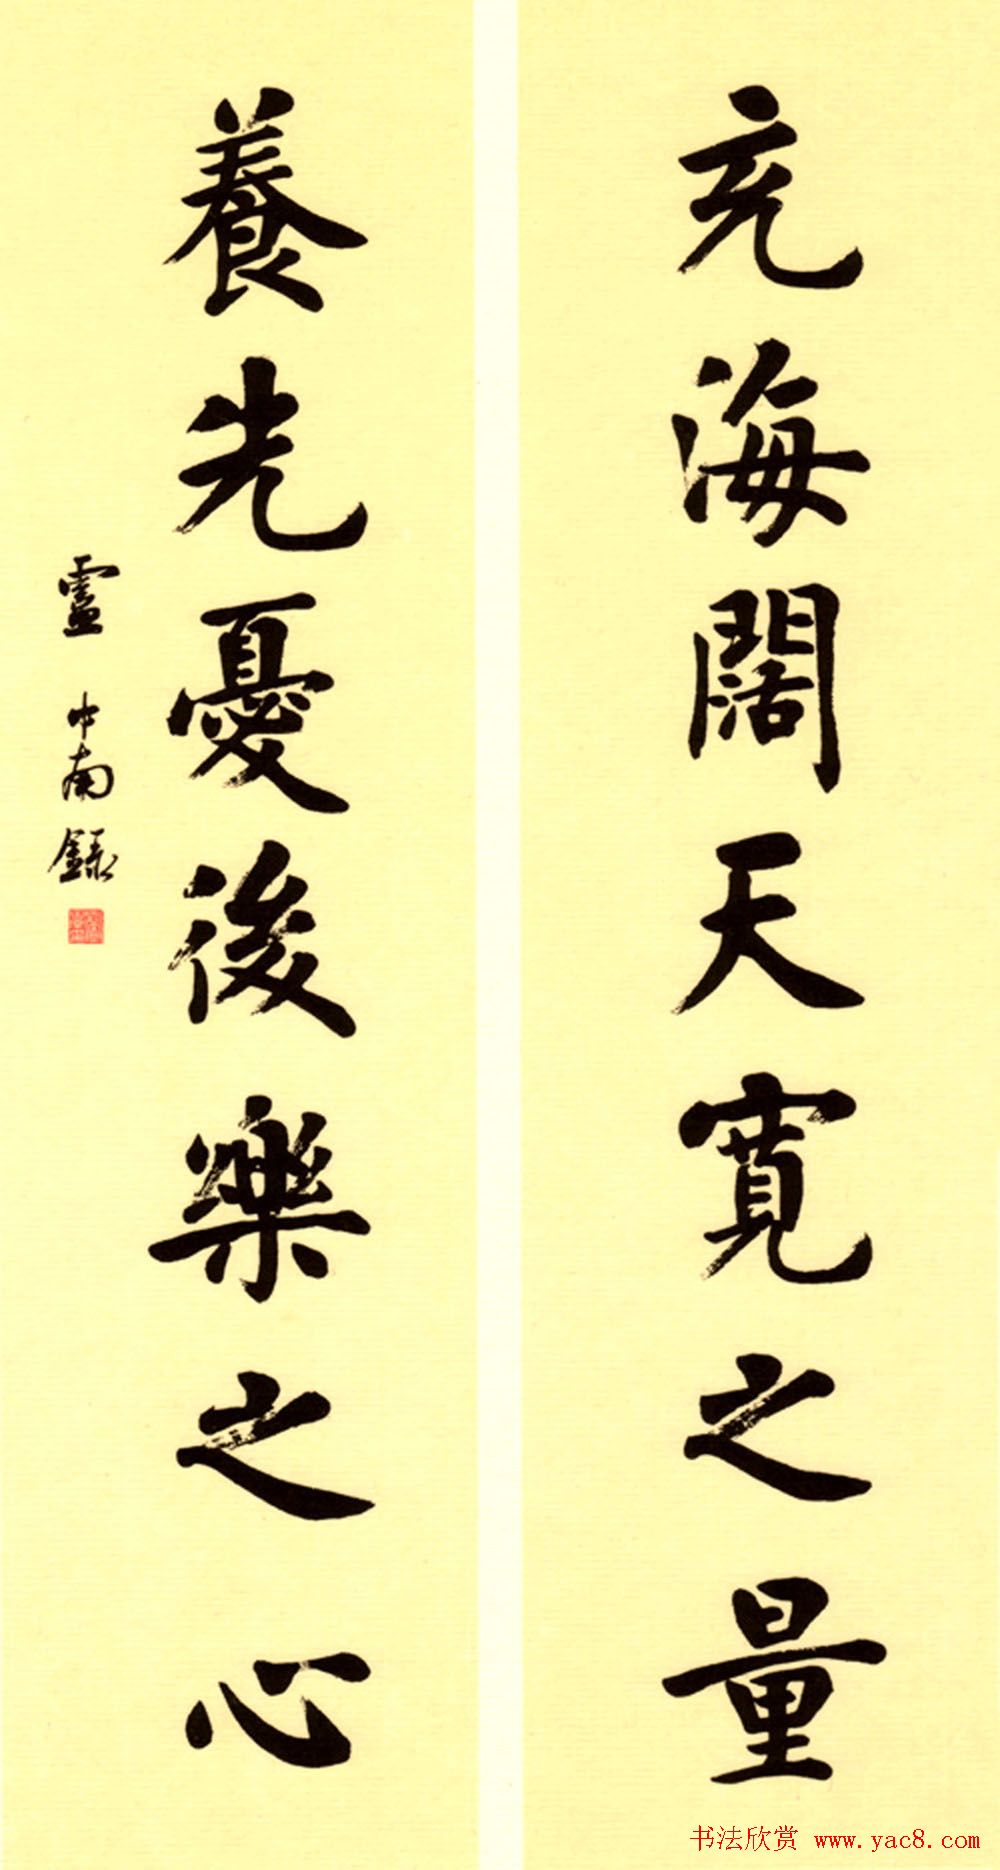 充海闊天寬之量
養先憂後樂之心
盧中南錄
书法欣赏 www.yac8.com